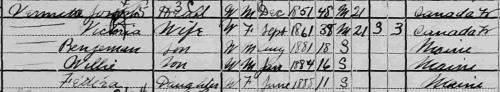 Vermette Joseph Head W M Dec 1851 48 M 21 Canada Fr
Victoria Wife W F Sept 1861 38 M 21 3 3 Canada Fr
Benjeman Son W M Aug 1881 18 S Maine
Willie Son W M Jan 1884 16 S Maine
Daughter W F June 1888 11 S Maine